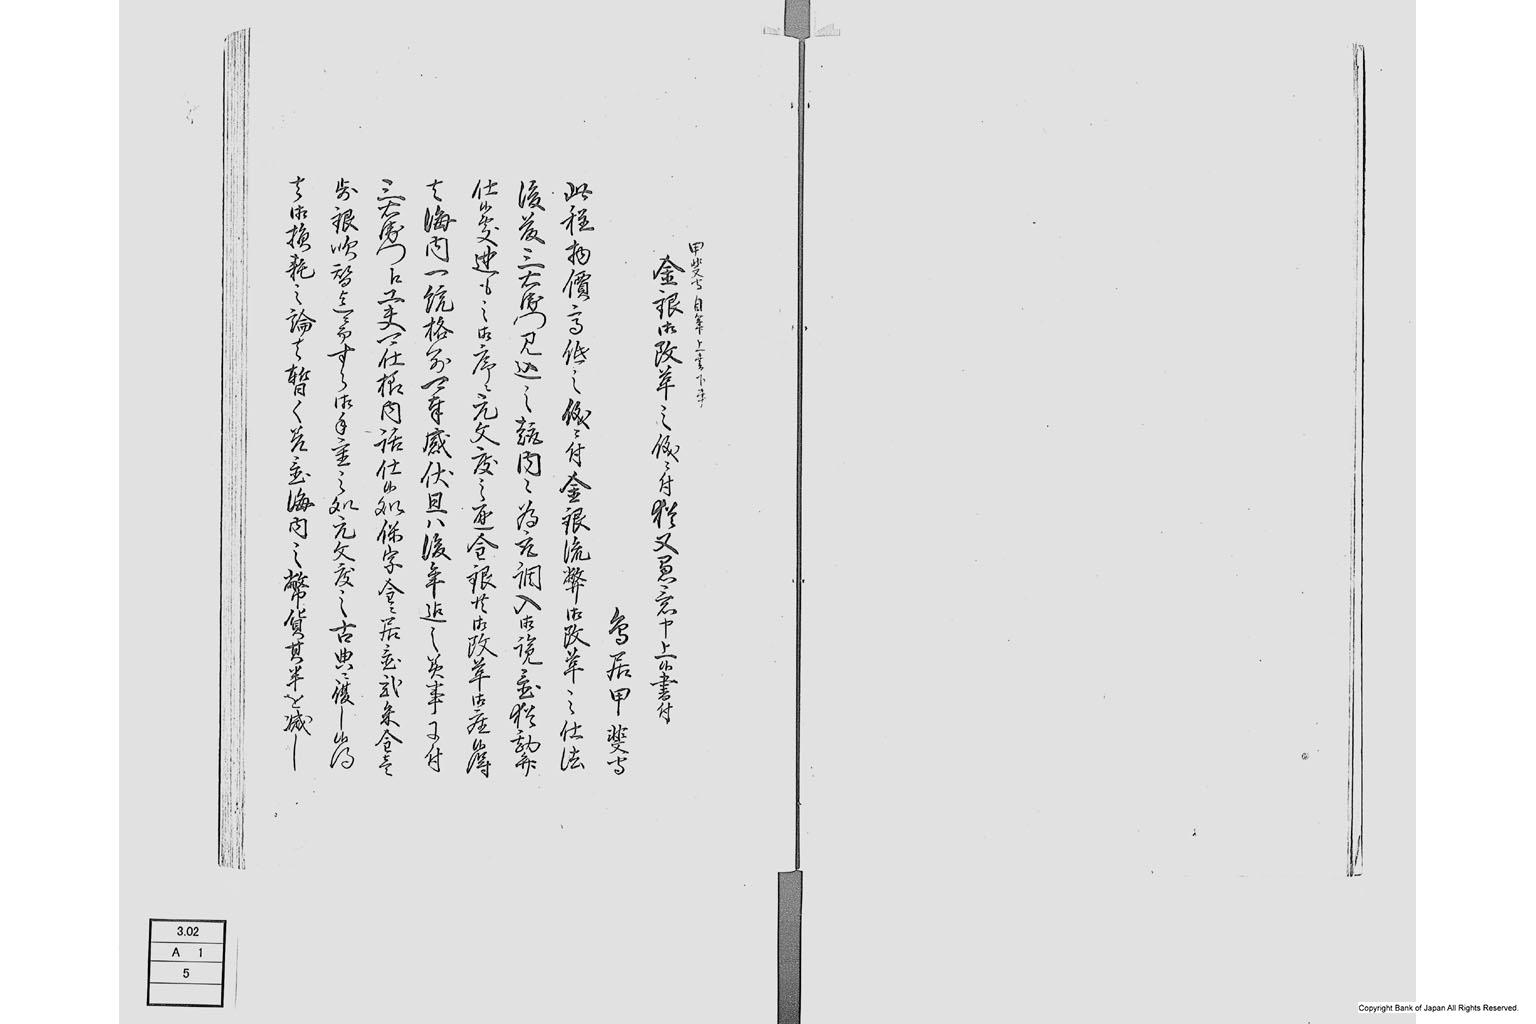 甲斐守自筆上書下案
金銀御改革之儀ニ付猶又愚意申上候書付
鳥居甲斐守
此程物價高低之儀ニ付金銀流弊御改革之仕法
後藤三右衛門見込之趣内々為取調入御覧置猶勘弁
仕候処迚も之御序ニ元文度之通金銀共御改革御座候得
者海内一統格別ニ可奉感伏且ハ後年迄之美事ニ付
三右衛門江工夫可仕様内話仕候処保字金ニ居置弐朱金壱
歩銀吹替迄ニ而すら御手重之処元文度之古典ニ復し候得
者御損耗之論者暫く差置海内之幣貨其半を減し
3.02
A 1
5
Copyright Bank of Japan All Rights Reserved.